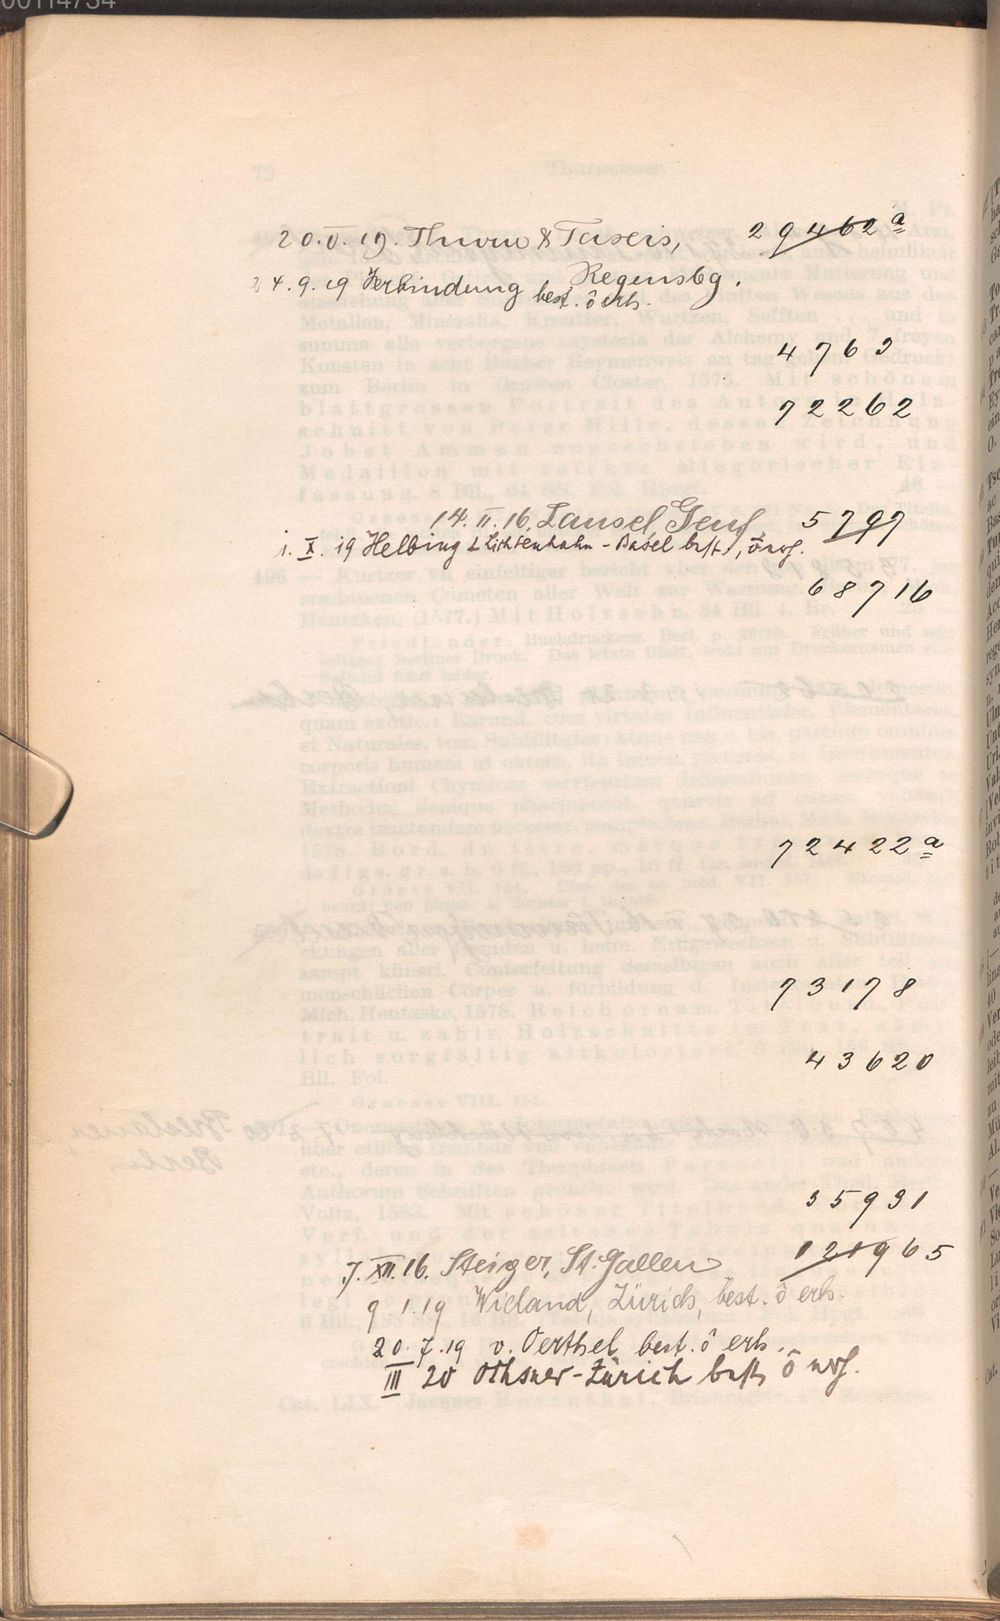 00114734
20.V.19. Thurn & Taxis, 29462a
Regensbg.
24.9.19 Verbindung best. ō erh.
4763
72262
14.II.16. Lansel, Genf 5797
1.X.19 Helbing & Lichtenhahn - Basel best.,
68716
72422a
73178
43620
35931
7.XII.16. Steiger, St. Gallen 121965
9.1.19 Wieland, Zürich, best. ō erh.
20.7.19 v. Oerthel best. ō erh.
III 20 -Zürich best. ō